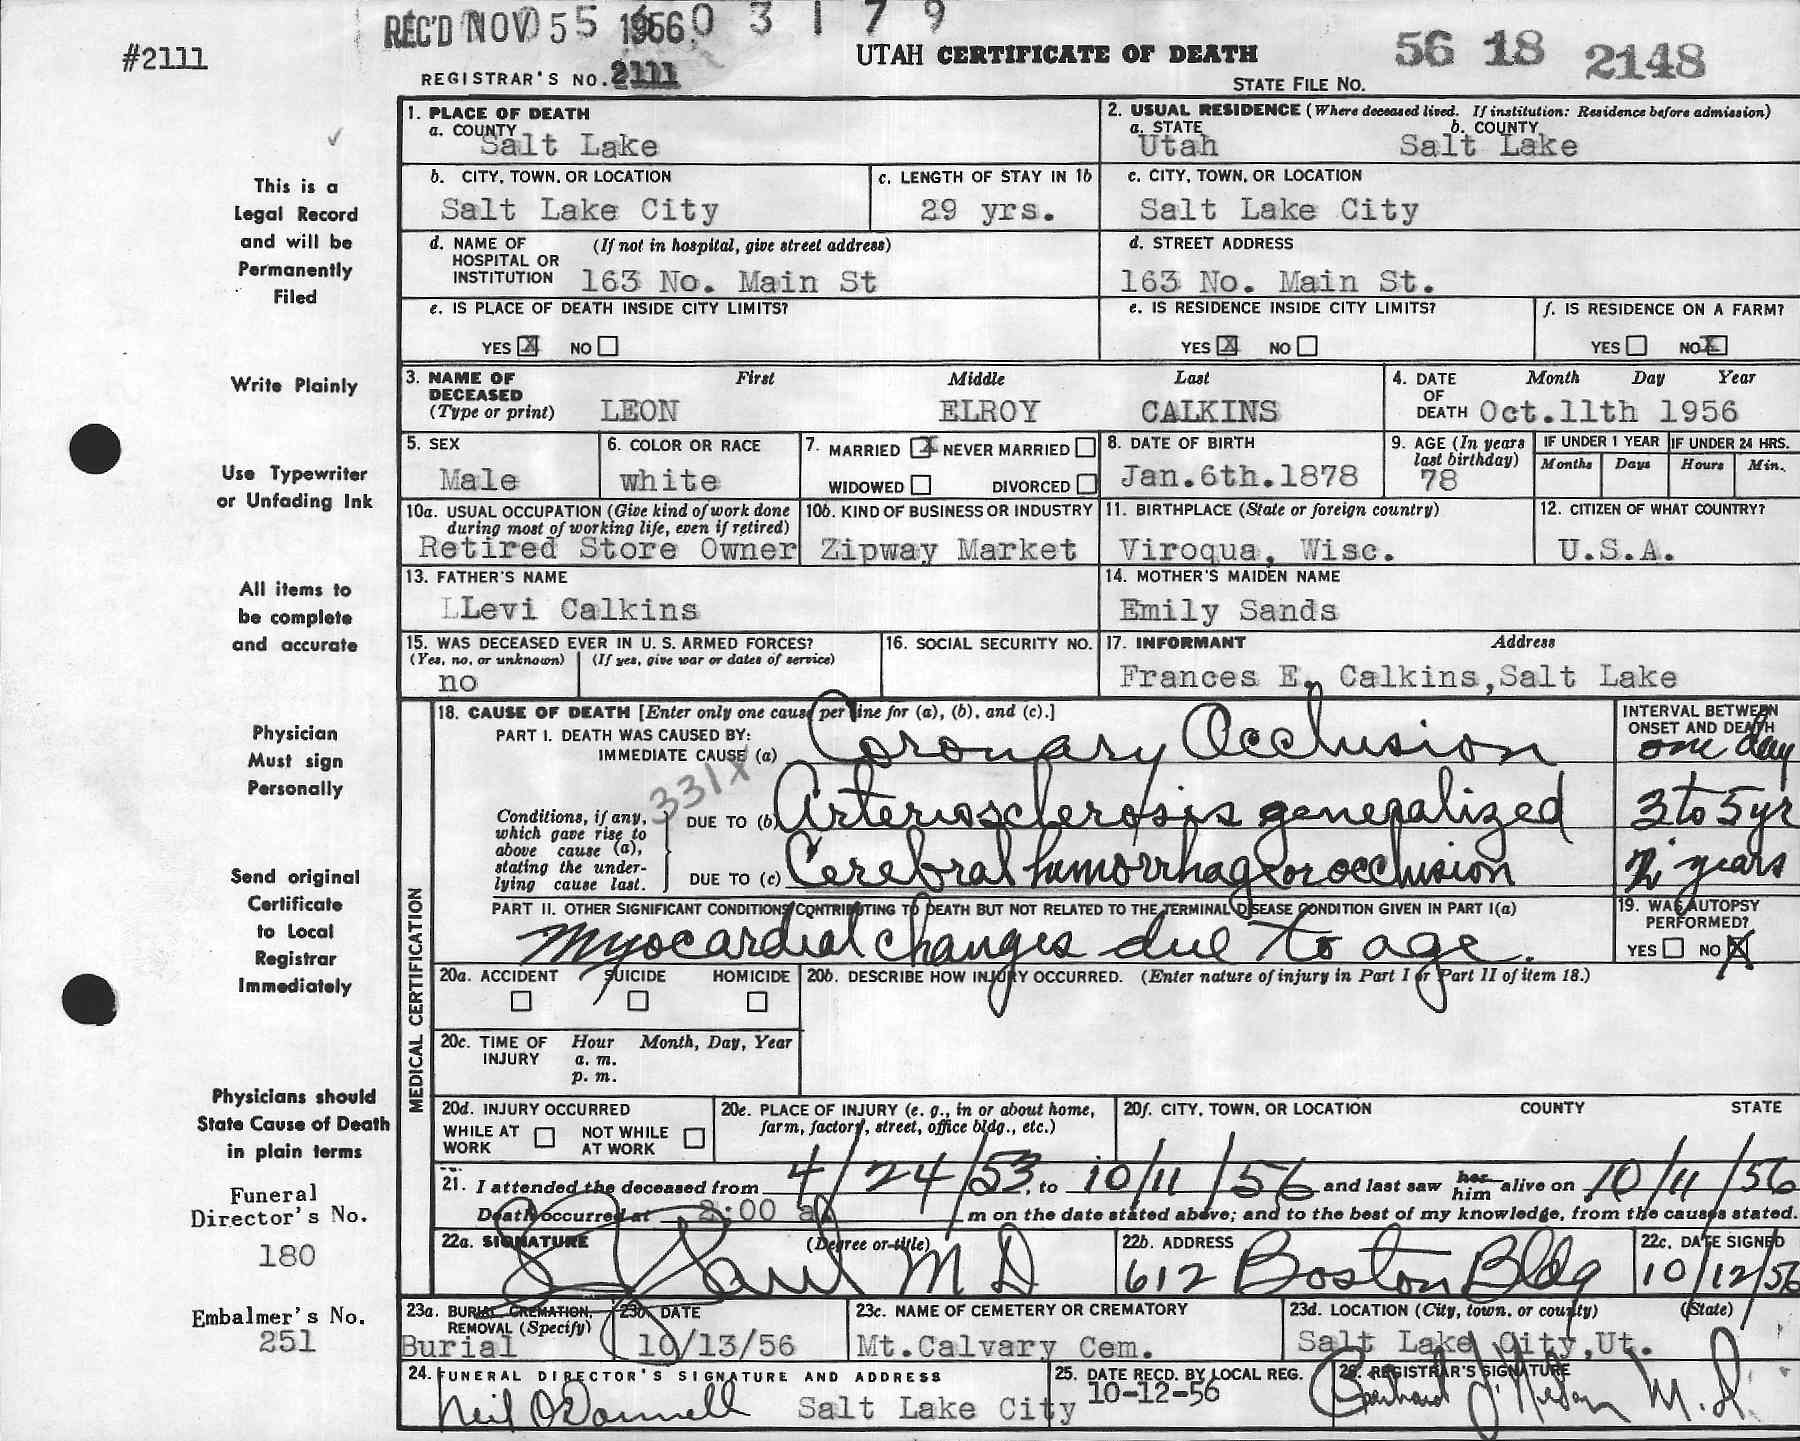 #2111
REC'D NOV 55 1956 0 3 1 7 9
REGISTRAR'S NO. 2111
UTAH CERTIFICATE OF DEATH
STATE FILE NO. 56 18 2148
This is a
Legal Record
and will be
Permanently
Filed
Write Plainly
Use Typewriter
or Unfading Ink
All items to
be complete
and accurate
Physician
Must sign
Personally
Send original
Certificate
to Local
Registrar
Immediately
Physicians should
State Cause of Death
in plain terms
Funeral
Director's No.
180
Embalmer's No.
251
1. PLACE OF DEATH
a. COUNTY
Salt Lake
2. USUAL RESIDENCE (Where deceased lived. If institution: Residence before admission)
a. STATE b. COUNTY
Utah Salt Lake
b. CITY, TOWN, OR LOCATION
Salt Lake City
c. LENGTH OF STAY IN 1b
29 yrs.
c. CITY, TOWN, OR LOCATION
Salt Lake City
d. NAME OF HOSPITAL OR INSTITUTION (If not in hospital, give street address)
163 No. Main St
d. STREET ADDRESS
163 No. Main St.
e. IS PLACE OF DEATH INSIDE CITY LIMITS?
YES X NO
e. IS RESIDENCE INSIDE CITY LIMITS?
YES X NO
f. IS RESIDENCE ON A FARM?
YES NO X
3. NAME OF DECEASED (Type or print) First Middle Last
LEON ELROY CALKINS
4. DATE OF DEATH Month Day Year
Oct.11th 1956
5. SEX
Male
6. COLOR OR RACE
white
7. MARRIED X NEVER MARRIED
WIDOWED DIVORCED
8. DATE OF BIRTH
Jan.6th.1878
9. AGE (In years last birthday)
78
IF UNDER 1 YEAR IF UNDER 24 HRS.
Months Days Hours Min.
10a. USUAL OCCUPATION (Give kind of work done during most of working life, even if retired)
Retired Store Owner
10b. KIND OF BUSINESS OR INDUSTRY
Zipway Market
11. BIRTHPLACE (State or foreign country)
Viroqua, Wisc.
12. CITIZEN OF WHAT COUNTRY?
U.S.A.
13. FATHER'S NAME
LLevi Calkins
14. MOTHER'S MAIDEN NAME
Emily Sands
15. WAS DECEASED EVER IN U. S. ARMED FORCES?
(Yes, no, or unknown) (If yes, give war or dates of service)
no
16. SOCIAL SECURITY NO.
17. INFORMANT Address
Frances E. Calkins,Salt Lake
MEDICAL CERTIFICATION
18. CAUSE OF DEATH [Enter only one cause per line for (a), (b), and (c).]
PART I. DEATH WAS CAUSED BY:
IMMEDIATE CAUSE (a) Coronary Occlusion
INTERVAL BETWEEN ONSET AND DEATH
one day
331X
Conditions, if any, which gave rise to above cause (a), stating the underlying cause last.
DUE TO (b) Arteriosclerosis generalized 3 to 5 yr
DUE TO (c) Cerebral hemorrhage or occlusion 2 years
PART II. OTHER SIGNIFICANT CONDITIONS CONTRIBUTING TO DEATH BUT NOT RELATED TO THE TERMINAL DISEASE CONDITION GIVEN IN PART I(a)
Myocardial changes due to age.
19. WAS AUTOPSY PERFORMED?
YES NO X
20a. ACCIDENT SUICIDE HOMICIDE
20b. DESCRIBE HOW INJURY OCCURRED. (Enter nature of injury in Part I or Part II of item 18.)
20c. TIME OF INJURY Hour Month, Day, Year
a. m.
p. m.
20d. INJURY OCCURRED
WHILE AT WORK NOT WHILE AT WORK
20e. PLACE OF INJURY (e. g., in or about home, farm, factory, street, office bldg., etc.)
20f. CITY, TOWN, OR LOCATION COUNTY STATE
21. I attended the deceased from 4/24/53, to 10/11/56 and last saw her him alive on 10/11/56
Death occurred at 2:00 a m on the date stated above; and to the best of my knowledge, from the causes stated.
22a. SIGNATURE (Degree or title)
M D
22b. ADDRESS
612 Boston Bldg
22c. DATE SIGNED
10/12/56
23a. BURIAL, CREMATION, REMOVAL (Specify)
Burial
23b. DATE
10/13/56
23c. NAME OF CEMETERY OR CREMATORY
Mt.Calvary Cem.
23d. LOCATION (City, town. or county) (State)
Salt Lake City,Ut.
24. FUNERAL DIRECTOR'S SIGNATURE AND ADDRESS
Neil O'Donnell Salt Lake City
25. DATE RECD. BY LOCAL REG.
10-12-56
26. REGISTRAR'S SIGNATURE
M.D.